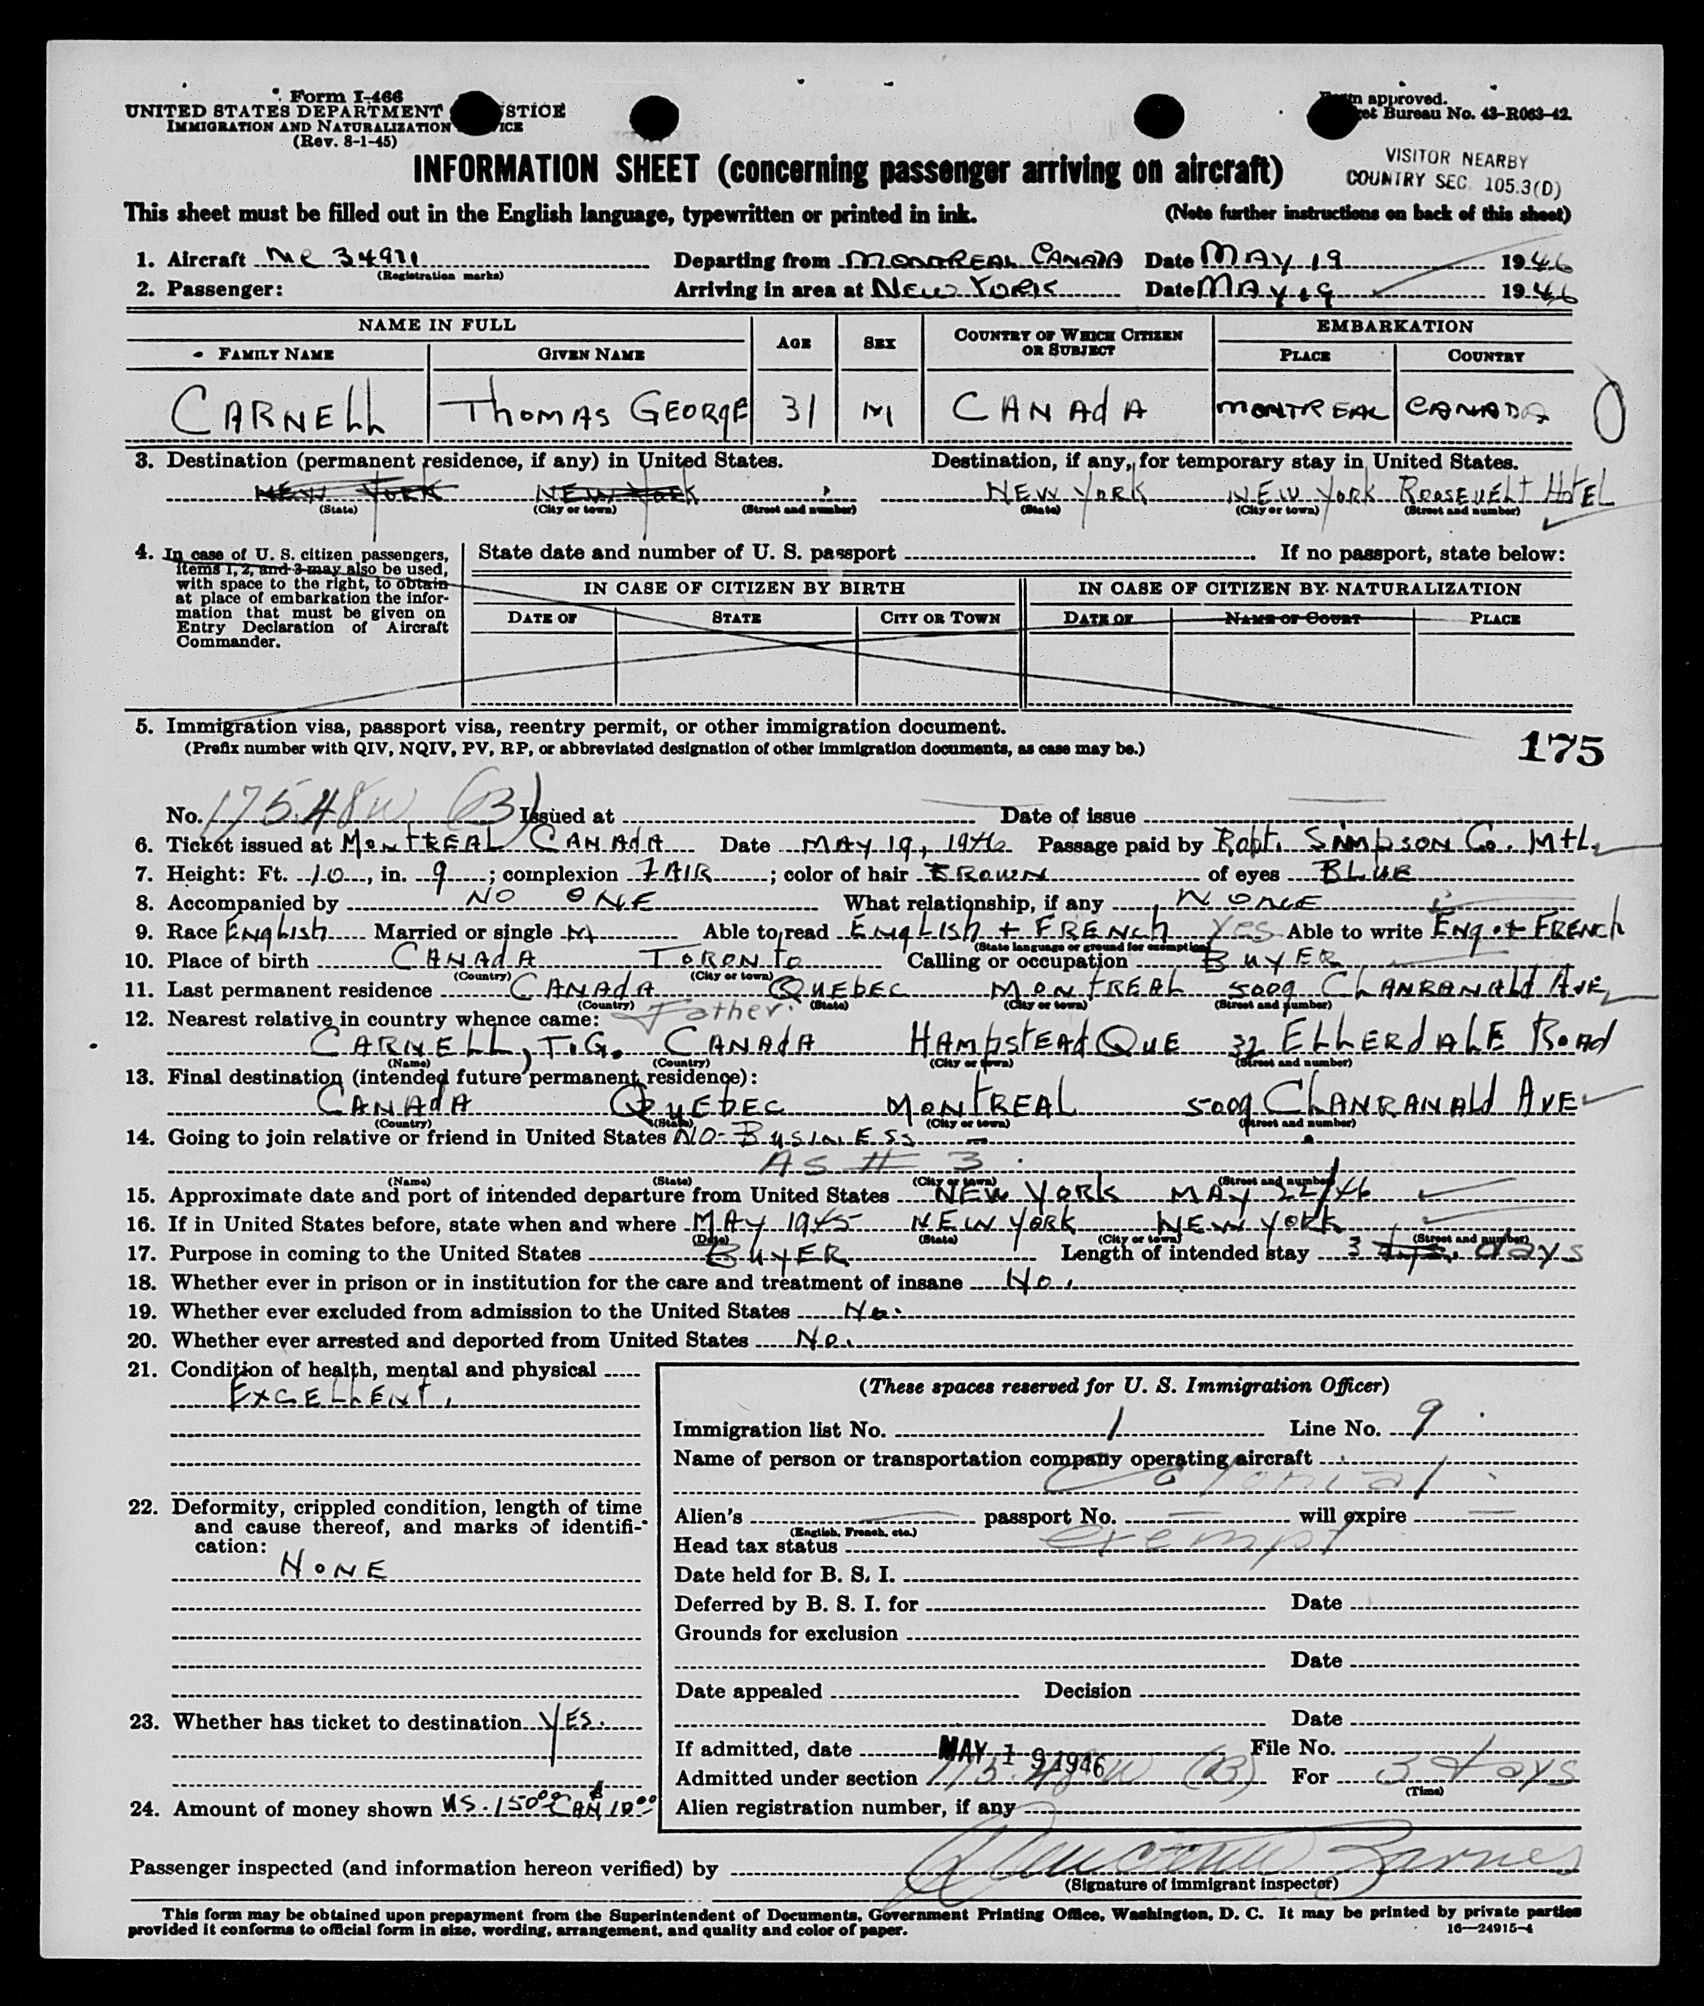 Form I-466
UNITED STATES DEPARTMENT STICE
IMMIGRATION AND NATURALIZATION ICE
(Rev. 8-1-45)
n approved.
et Bureau No. 43-R063-42.
INFORMATION SHEET (concerning passenger arriving on aircraft)
VISITOR NEARBY
COUNTRY SEC. 105.3(D)
This sheet must be filled out in the English language, typewritten or printed in ink. (Note further instructions on back of this sheet)
1. Aircraft 34971 Departing from MONTREAL CANADA Date MAY 19 1946
(Registration marks)
2. Passenger: Arriving in area at NEW YORK Date MAY 19 1946
NAME IN FULL AGE SEX COUNTRY OF WHICH CITIZEN OR SUBJECT EMBARKATION
FAMILY NAME GIVEN NAME PLACE COUNTRY
CARNELL THOMAS GEORGE 31 M CANADA MONTREAL CANADA 0
3. Destination (permanent residence, if any) in United States. Destination, if any, for temporary stay in United States.
NEW YORK NEW YORK NEW YORK NEW YORK ROOSEVELT HOTEL
(State) (City or town) (Street and number) (State) (City or town) (Street and number)
4. In case of U. S. citizen passengers, items 1, 2, and 3 may also be used, with space to the right, to obtain at place of embarkation the information that must be given on Entry Declaration of Aircraft Commander.
State date and number of U. S. passport If no passport, state below:
IN CASE OF CITIZEN BY BIRTH IN CASE OF CITIZEN BY NATURALIZATION
DATE OF STATE CITY OR TOWN DATE OF NAME OF COURT PLACE
5. Immigration visa, passport visa, reentry permit, or other immigration document.
(Prefix number with QIV, NQIV, PV, RP, or abbreviated designation of other immigration documents, as case may be.)
175
No. 175.48W (B) Issued at Date of issue
6. Ticket issued at MONTREAL CANADA Date MAY 19, 1946 Passage paid by Robt. SIMPSON Co. MTL
7. Height: Ft. 10, in. 9; complexion FAIR; color of hair BROWN of eyes BLUE
8. Accompanied by NO ONE What relationship, if any NONE
9. Race ENGLISH Married or single M Able to read ENGLISH + FRENCH YES Able to write ENG. + FRENCH
(State language or ground for exemption)
10. Place of birth CANADA TORONTO Calling or occupation BUYER
(Country) (City or town)
11. Last permanent residence CANADA QUEBEC MONTREAL 5009 CLANRANALD AVE
(Country) (State) (City or town) (Street and number)
12. Nearest relative in country whence came: Father.
CARNELL, T.G. CANADA HAMPSTEAD QUE 32 ELLERDALE ROAD
(Name) (Country) (City or town) (Street and number)
13. Final destination (intended future permanent residence):
CANADA QUEBEC MONTREAL 5009 CLANRANALD AVE
(Country) (State) (City or town) (Street and number)
14. Going to join relative or friend in United States NO - BUSINESS
AS # 3
(Name) (State) (City or town) (Street and number)
15. Approximate date and port of intended departure from United States NEW YORK MAY 22/46
16. If in United States before, state when and where MAY 1945 NEW YORK NEW YORK
(Date) (State) (City or town) (Street and number)
17. Purpose in coming to the United States BUYER Length of intended stay 3 dys. days
18. Whether ever in prison or in institution for the care and treatment of insane No.
19. Whether ever excluded from admission to the United States No.
20. Whether ever arrested and deported from United States No.
21. Condition of health, mental and physical
EXCELLENT.
22. Deformity, crippled condition, length of time and cause thereof, and marks of identification:
NONE
23. Whether has ticket to destination YES.
24. Amount of money shown US. 150.00 CAN $10.00
(These spaces reserved for U. S. Immigration Officer)
Immigration list No. 1 Line No. 9
Name of person or transportation company operating aircraft
Colonial
Alien's passport No. will expire
(English, French, etc.)
Head tax status exempt
Date held for B. S. I.
Deferred by B. S. I. for Date
Grounds for exclusion
Date
Date appealed Decision
Date
If admitted, date MAY 19 1946 File No.
Admitted under section 175.48W (B) For 3 days
(Time)
Alien registration number, if any
Passenger inspected (and information hereon verified) by Barnes
(Signature of immigrant inspector)
This form may be obtained upon prepayment from the Superintendent of Documents, Government Printing Office, Washington, D. C. It may be printed by private parties
provided it conforms to official form in size, wording, arrangement, and quality and color of paper. 16—24915-4